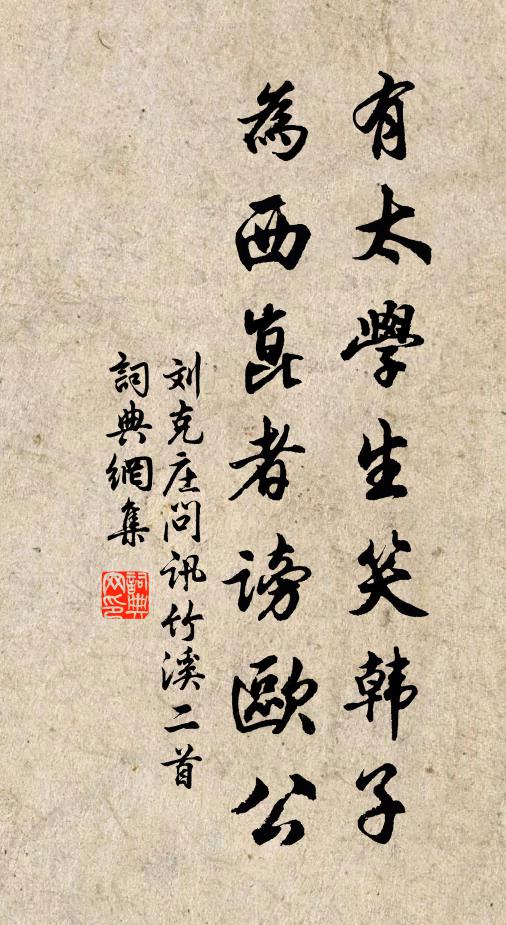 有太學生笑韩子
為西崑者謗歐公
刘克庄问讯竹溪二首
詞典網集
詞典网印